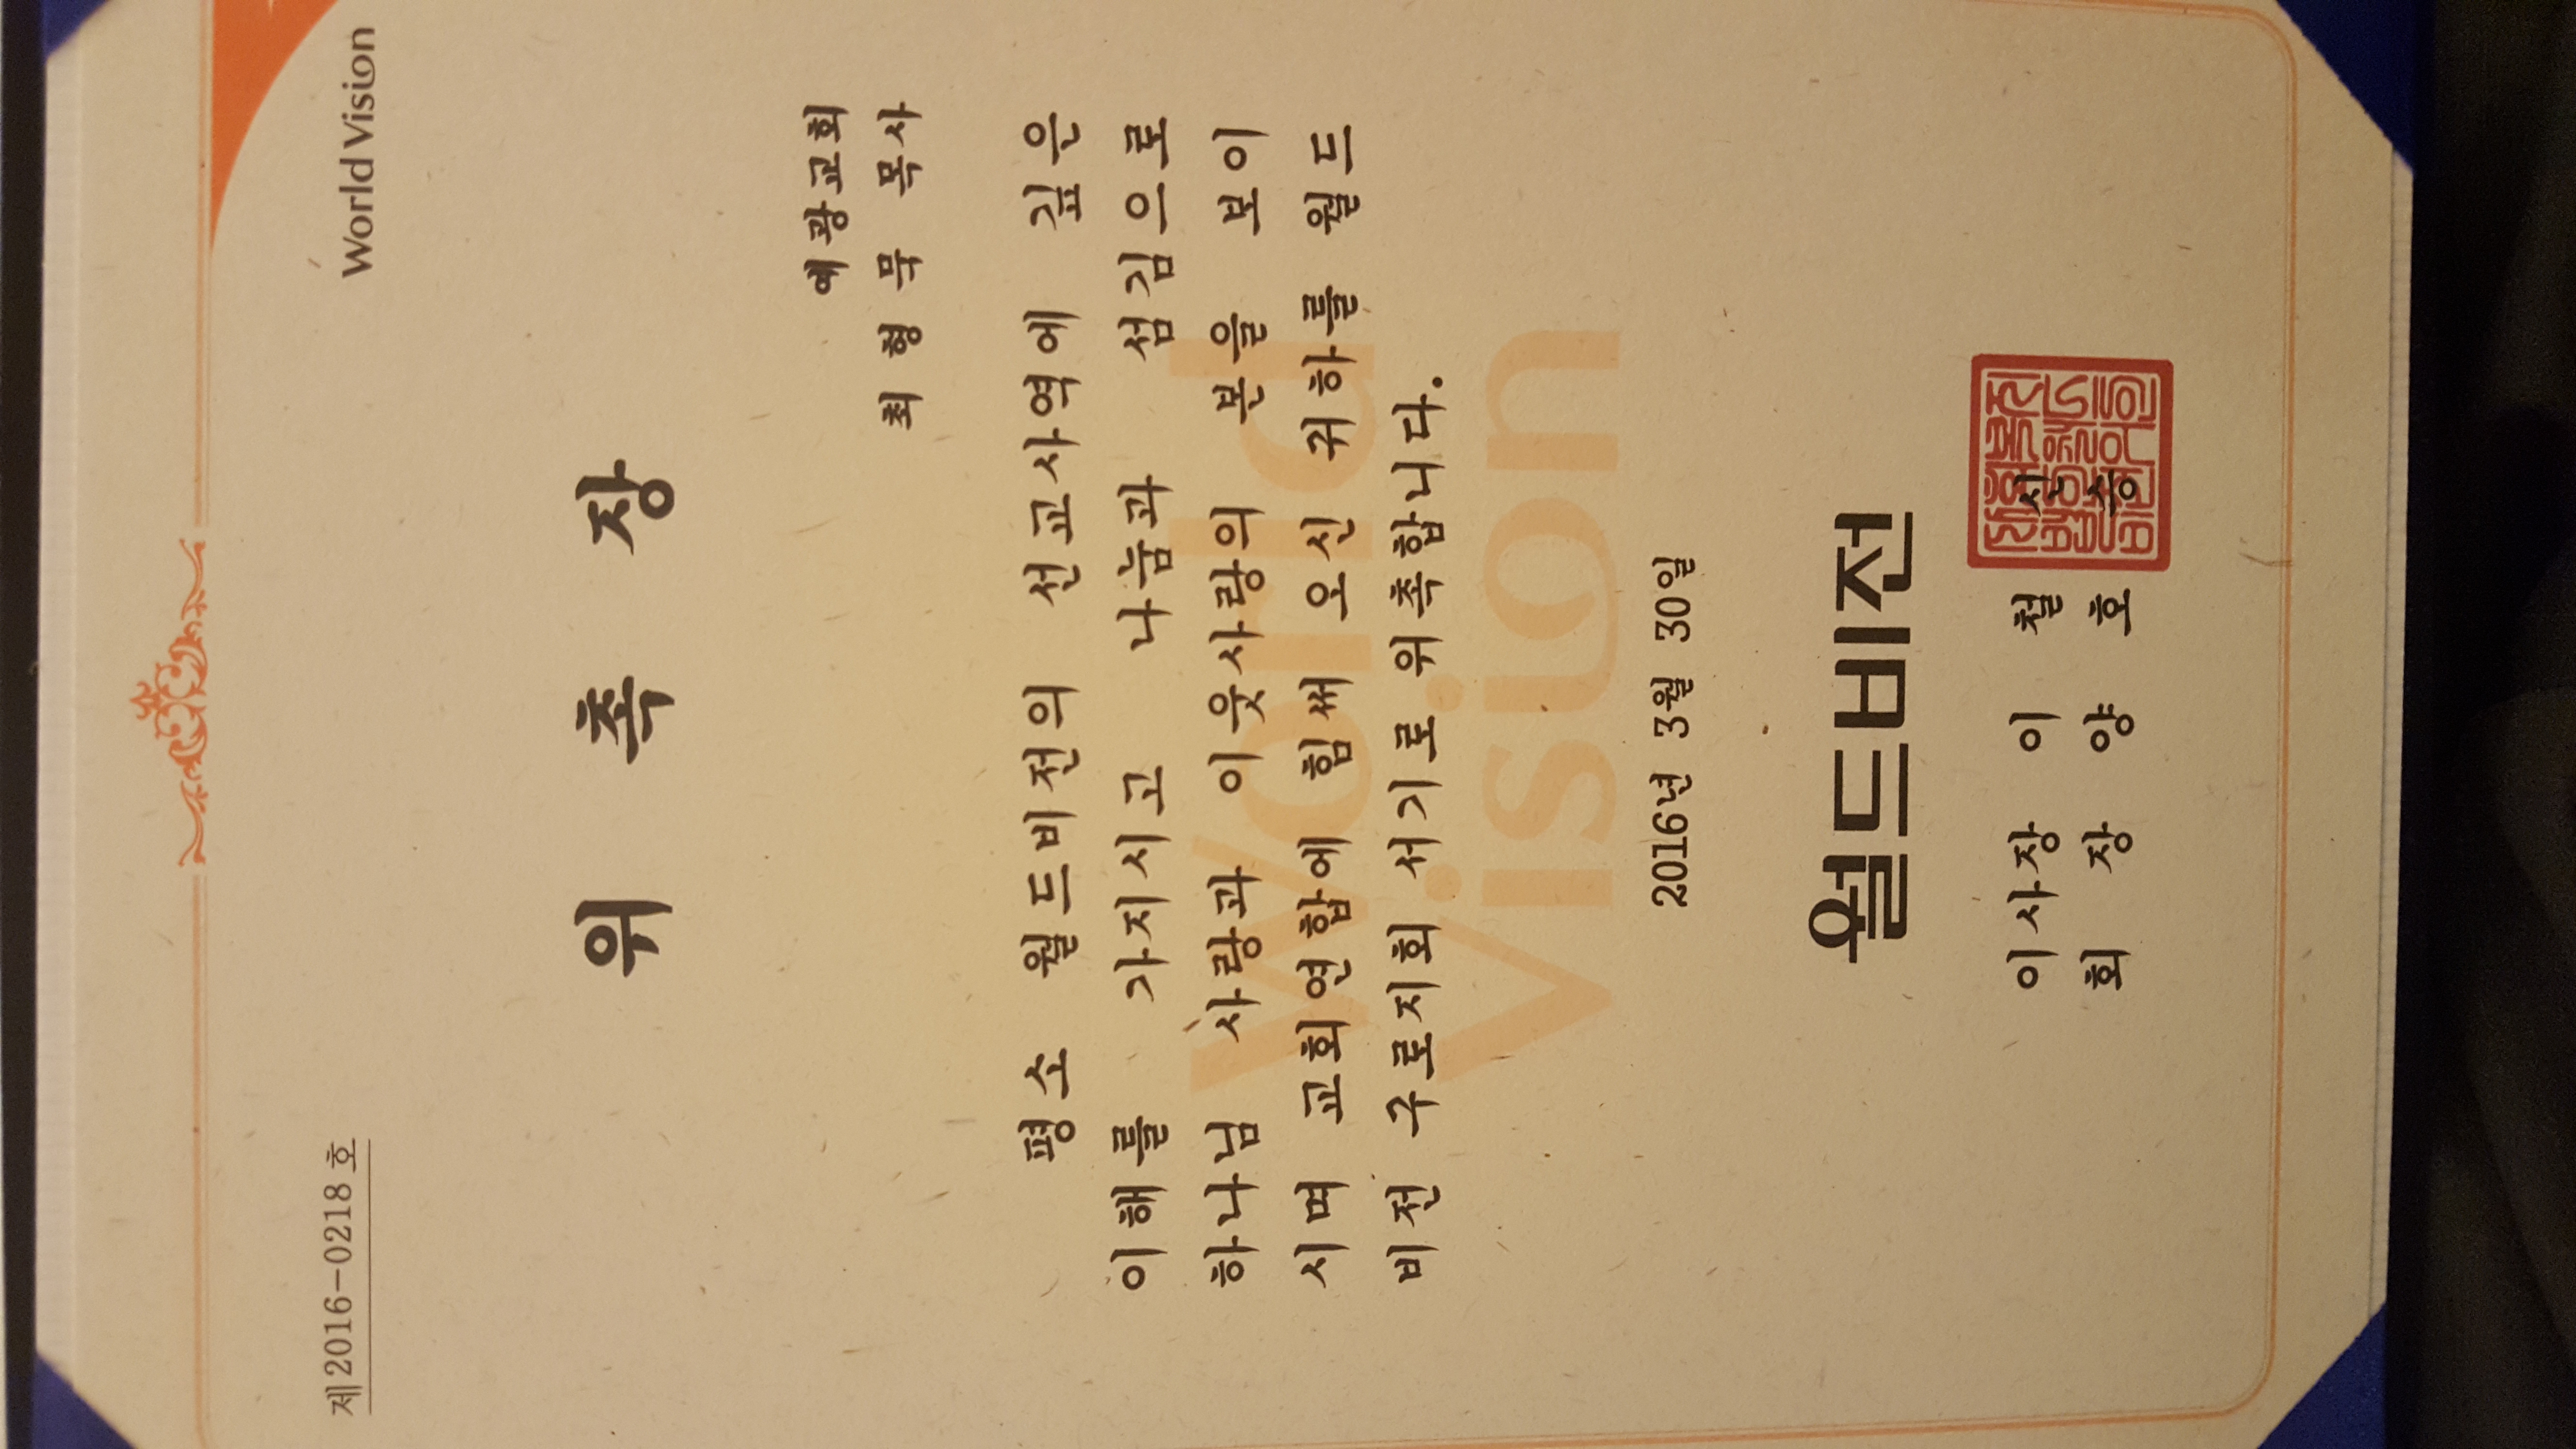 제2016-0218 호
World Vision
위 촉 장
예광교회
최 형 묵 목사
평소 월드비전의 선교사역에 깊은
이해를 가지시고 나눔과 섬김으로
하나님 사랑과 이웃사랑의 본을 보이
시며 교회연합에 힘써 오신 귀하를 월드
비전 구로지회 서기로 위촉합니다.
World
Vision
2016년 3월 30일
월드비전
이사장 이 철 신
회 장 양 호 승